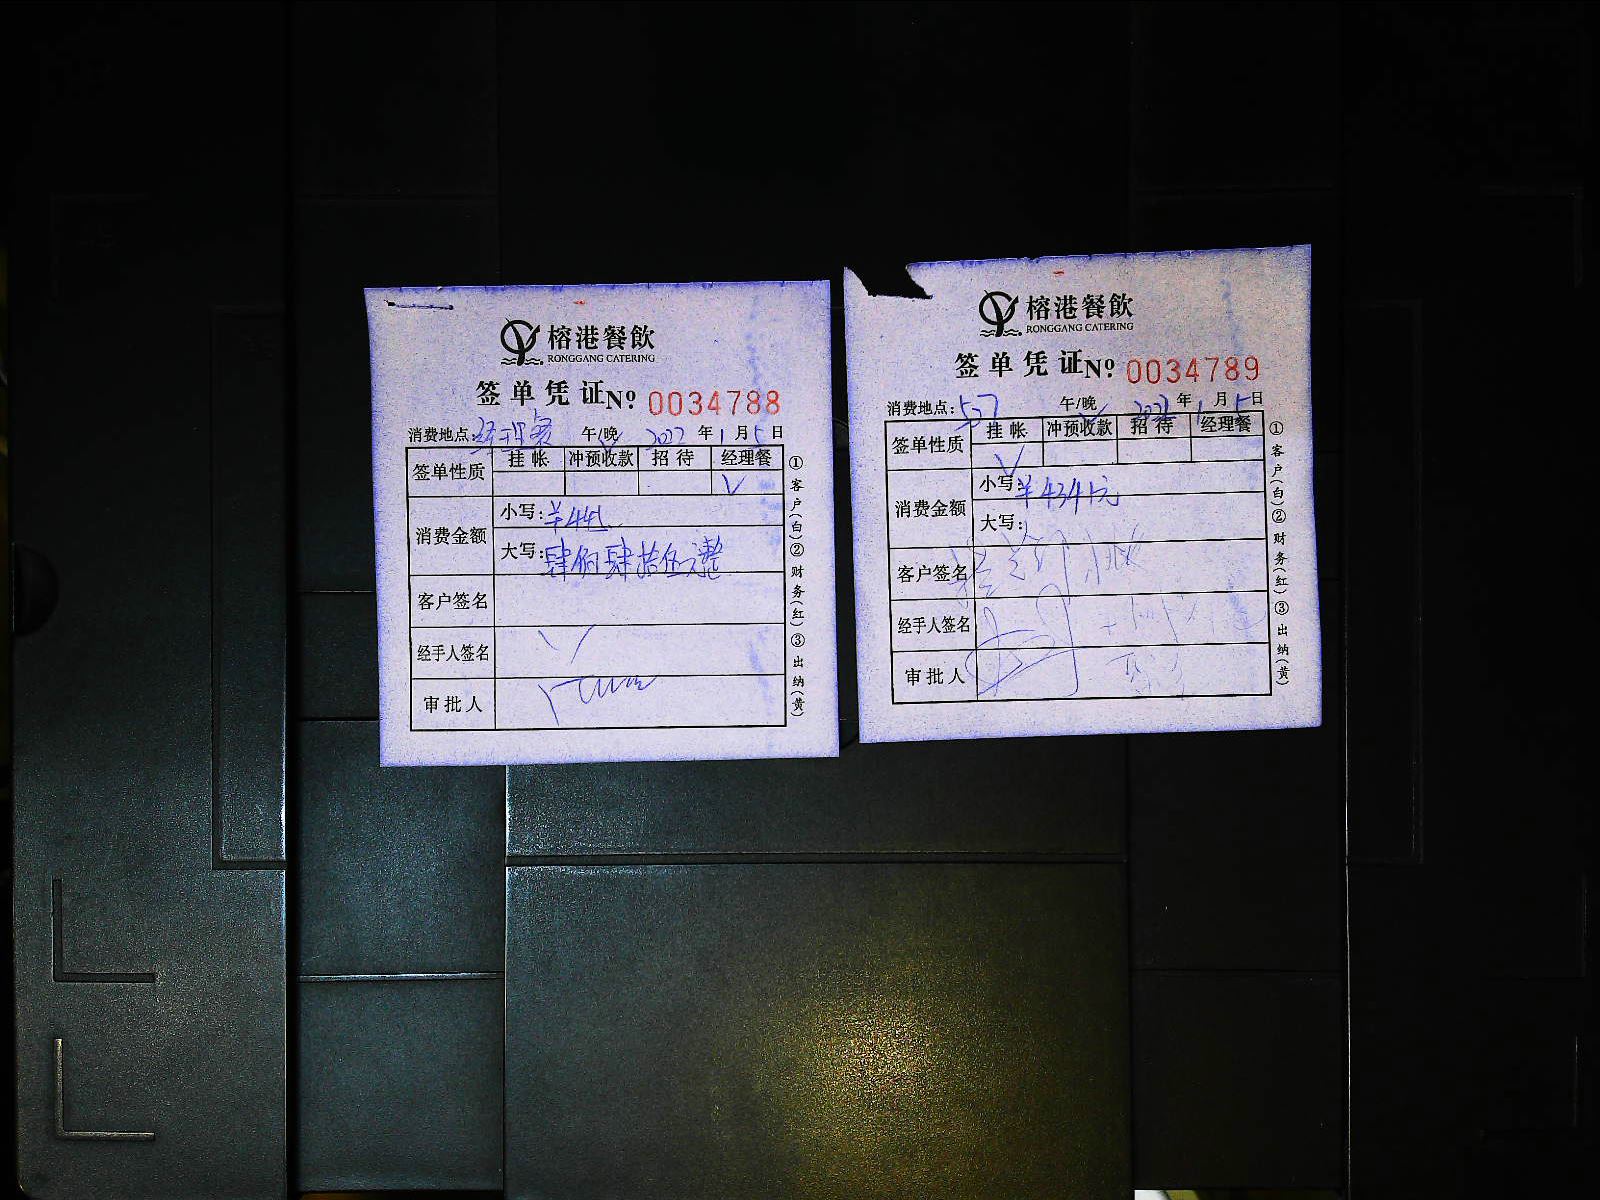 榕港餐飲
RONGGANG CATERING
签单凭证 Nº 0034788
消费地点:经理餐 午/晚 2022年1月5日
签单性质 挂帐 冲预收款 招待 经理餐
V
消费金额 小写:¥445
大写:肆佰肆拾伍元整
客户签名
经手人签名
审批人
①客户(白)②财务(红)③出纳(黄)
榕港餐飲
RONGGANG CATERING
签单凭证 Nº 0034789
消费地点:527 午/晚 2022年1月5日
签单性质 挂帐 冲预收款 招待 经理餐
V
消费金额 小写:¥4341元
大写:
客户签名
经手人签名
审批人
①客户(白)②财务(红)③出纳(黄)